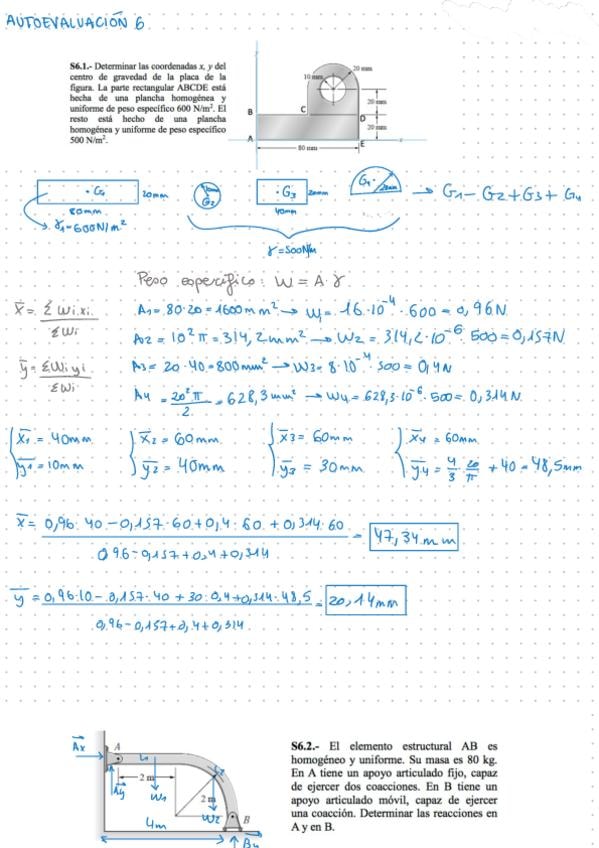 AUTOEVALUACIÓN 6
S6.1.- Determinar las coordenadas x, y del
centro de gravedad de la placa de la
figura. La parte rectangular ABCDE está
hecha de una plancha homogénea y
uniforme de peso específico 600 N/m². El
resto está hecho de una plancha
homogénea y uniforme de peso específico
500 N/m².
20 mm
10 mm
20 mm
B
C
D
20 mm
A
E
80 mm
· G1
20mm
80mm
γ1=600N/m²
10mm
G2
· G3
20mm
40mm
G4
20mm
→ G1 - G2 + G3 + G4
γ=500N/m
Peso específico: W = A·γ
x̄ = Σ Wi xi / ΣWi
ȳ = ΣWi yi / ΣWi
A1 = 80·20 = 1600mm² → W1 = 16·10⁻⁴·600 = 0,96N
A2 = 10²π = 314,2mm² → W2 = 314,2·10⁻⁶·500 = 0,157N
A3 = 20·40 = 800mm² → W3 = 8·10⁻⁴·500 = 0,4N
A4 = 20²π / 2 = 628,3mm² → W4 = 628,3·10⁻⁶·500 = 0,314N
x̄1 = 40mm x̄2 = 60mm x̄3 = 60mm x̄4 = 60mm
ȳ1 = 10mm ȳ2 = 40mm ȳ3 = 30mm ȳ4 = 4/3 · 20/π + 40 = 48,5mm
x̄ = 0,96·40 - 0,157·60 + 0,4·60 + 0,314·60 / 0,96 - 0,157 + 0,4 + 0,314 = 47,34mm
ȳ = 0,96·10 - 0,157·40 + 30·0,4 + 0,314·48,5 / 0,96 - 0,157 + 0,4 + 0,314 = 20,14mm
Ax
A
L1
L2
Ay
2 m
W1
2 m
W2
B
4m
By
S6.2.- El elemento estructural AB es
homogéneo y uniforme. Su masa es 80 kg.
En A tiene un apoyo articulado fijo, capaz
de ejercer dos coacciones. En B tiene un
apoyo articulado móvil, capaz de ejercer
una coacción. Determinar las reacciones en
A y en B.